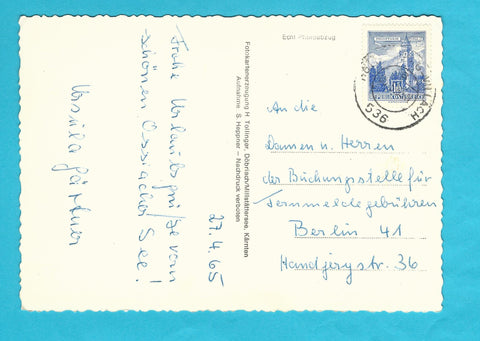 27.4.65
Frohe Urlaubsgrüße vom
schönen Ossiacher See!
Ursula Gärtner
Fotokartenerzeugung H. Tollinger, Döbriach/Millstättersee, Kärnten
Aufnahme S. Heppner – Nachdruck verboten
Echt Photoabzug
REPUBLIK ÖSTERREICH
VILLACH
536
An die
Damen u. Herren
der Buchungsstelle für
Fernmeldegebühren
Berlin 41
Handjerystr. 36